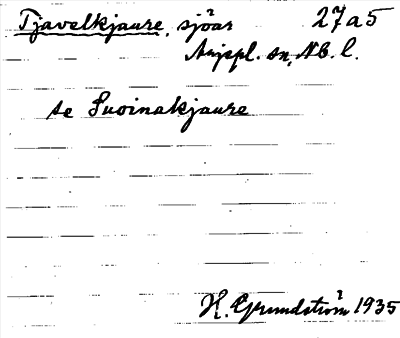 Tjavelkjaure, sjöar 27a5
Arjepl. sn, NB. l.
se Suoinakjaure
H. Grundström 1935